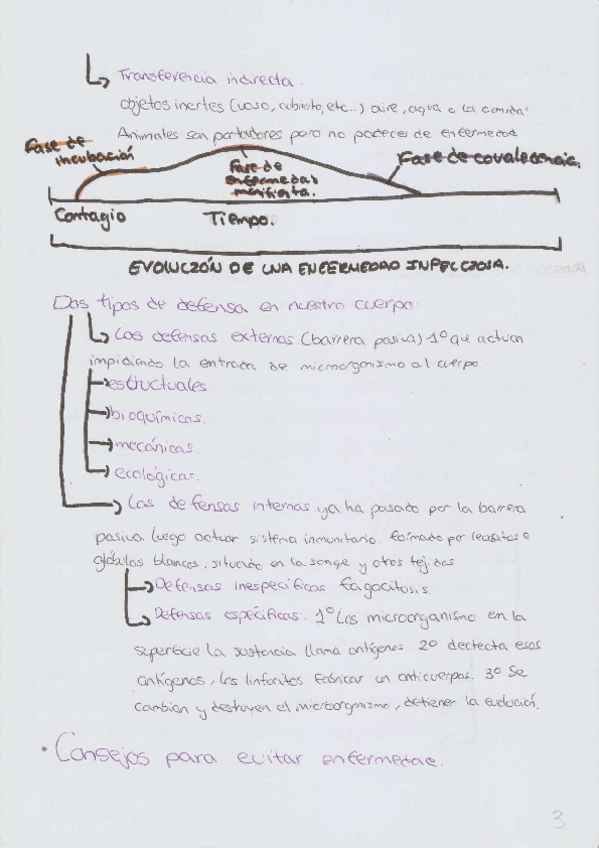 Transferencia indirecta.
objetos inertes (vaso, cubierto, etc...) aire, agua o la comida
Animales son portadores pero no padecer de enfermedad
Fase de
incubación
Fase de covalecencia.
Fase de
enfermedad
manifiesta.
Contagio
Tiempo.
EVOLUCIÓN DE UNA ENFERMEDAD INFECCIOSA.
Dos tipos de defensa en nuestro cuerpo
Las defensas externas (barrera pasiva) 1º que actuan
impidiendo la entrada de microorganismo al cuerpo
estructuales
bioquímicas.
mecánicas.
ecológicas.
Las defensas internas ya ha pasado por la barrera
pasiva luego actuar sistema inmunitario. Formado por o
glóbulos blancos, situado en la sangre y otros tejidos
Defensas inespecificas. Fagocitosis.
Defensas específicas. 1º Los microorganismo en la
superficie la sustancia llama antígenos 2º dectecta esos
antígenos, los linfocitos fabricar un anticuerpos. 3º Se
cambian y destruyen el microorganismo, detiener la evolución.
• Consejos para evitar enfermedad.
3